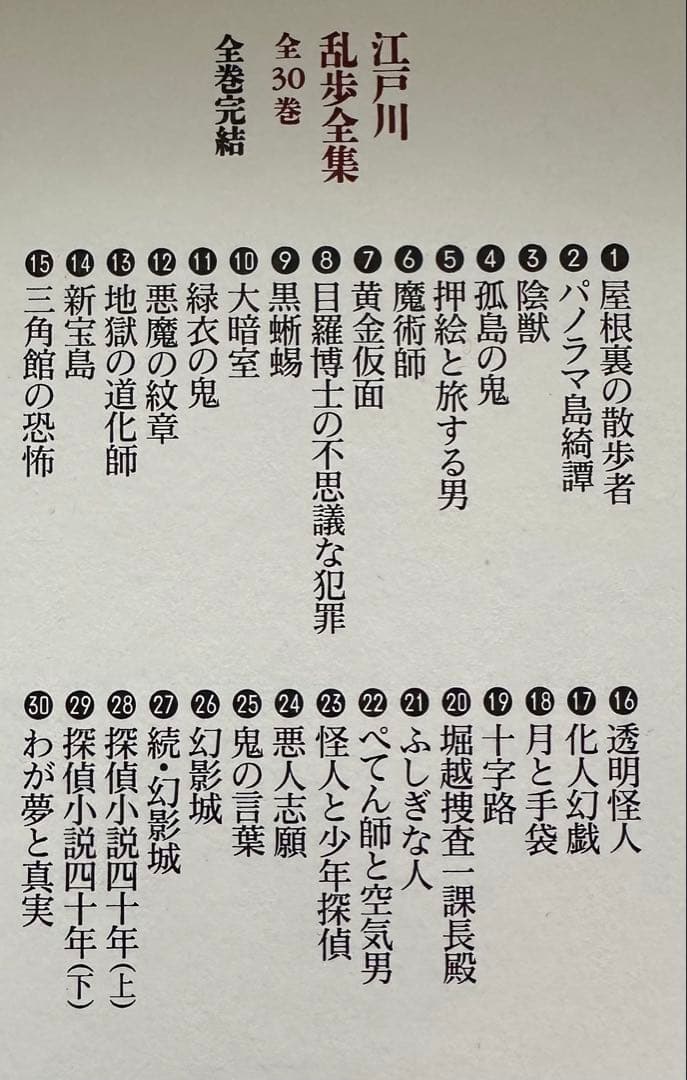 江戸川
乱歩全集
全30巻
全巻完結
❶屋根裏の散歩者
❷パノラマ島綺譚
❸陰獣
❹孤島の鬼
❺押絵と旅する男
❻魔術師
❼黄金仮面
❽目羅博士の不思議な犯罪
❾黒蜥蜴
❿大暗室
⓫緑衣の鬼
⓬悪魔の紋章
⓭地獄の道化師
⓮新宝島
⓯三角館の恐怖
⓰透明怪人
⓱化人幻戯
⓲月と手袋
⓳十字路
⓴堀越捜査一課長殿
21ふしぎな人
22ぺてん師と空気男
23怪人と少年探偵
24悪人志願
25鬼の言葉
26幻影城
27続・幻影城
28探偵小説四十年(上)
29探偵小説四十年(下)
30わが夢と真実